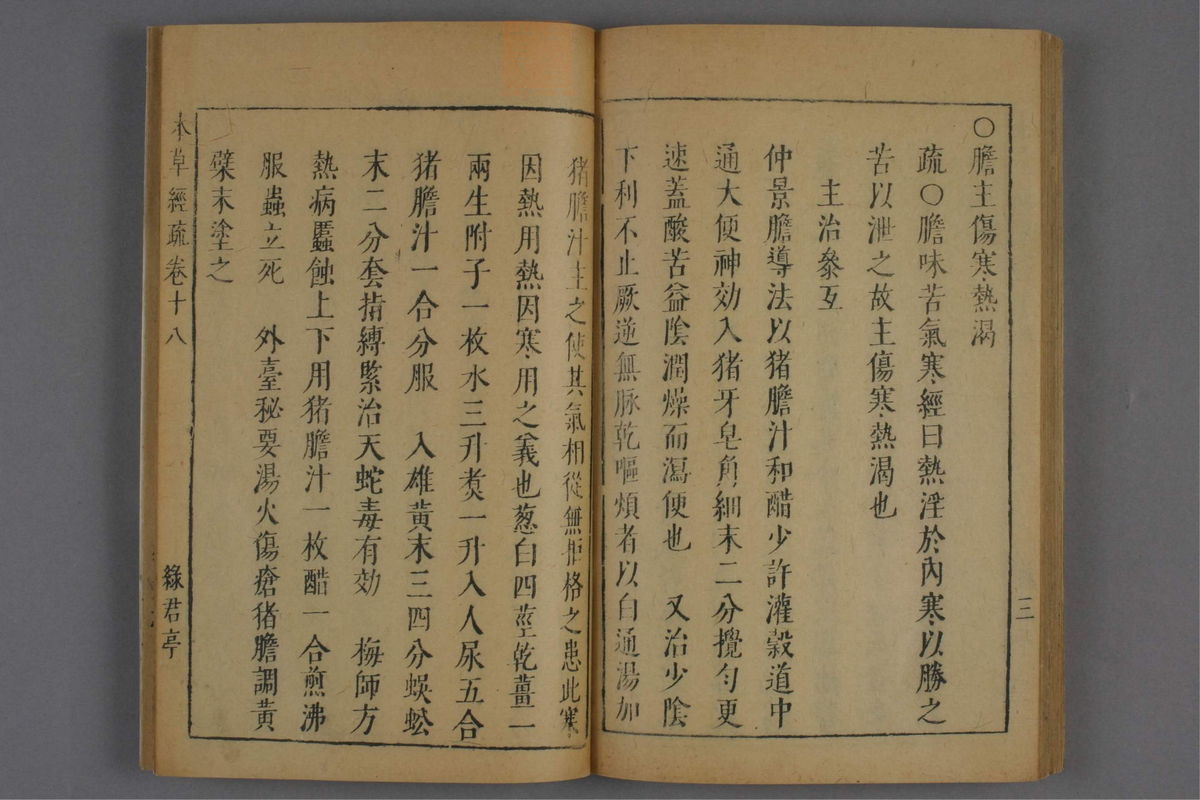 ○膽主傷寒熱渴
疏○膽味苦氣寒經曰熱淫於內寒以勝之
苦以泄之故主傷寒熱渴也
主治叅互
仲景膽導法以猪膽汁和醋少許灌穀道中
通大便神効入猪牙皂角細末二分攪勻更
速蓋酸苦益陰潤燥而瀉便也　又治少陰
下利不止厥逆無脉乾嘔煩者以白通湯加
三
猪膽汁主之使其氣相從無拒格之患此寒
因熱用熱因寒用之義也葱白四莖乾薑一
兩生附子一枚水三升煑一升入人尿五合
猪膽汁一合分服　入雄黃末三四分蜈蚣
末二分套指縛緊治天蛇毒有効　梅師方
熱病䘌蝕上下用猪膽汁一枚醋一合煎沸
服蟲立死　外臺秘要湯火傷瘡猪膽調黃
檗末塗之
本草經疏卷十八
綠君亭